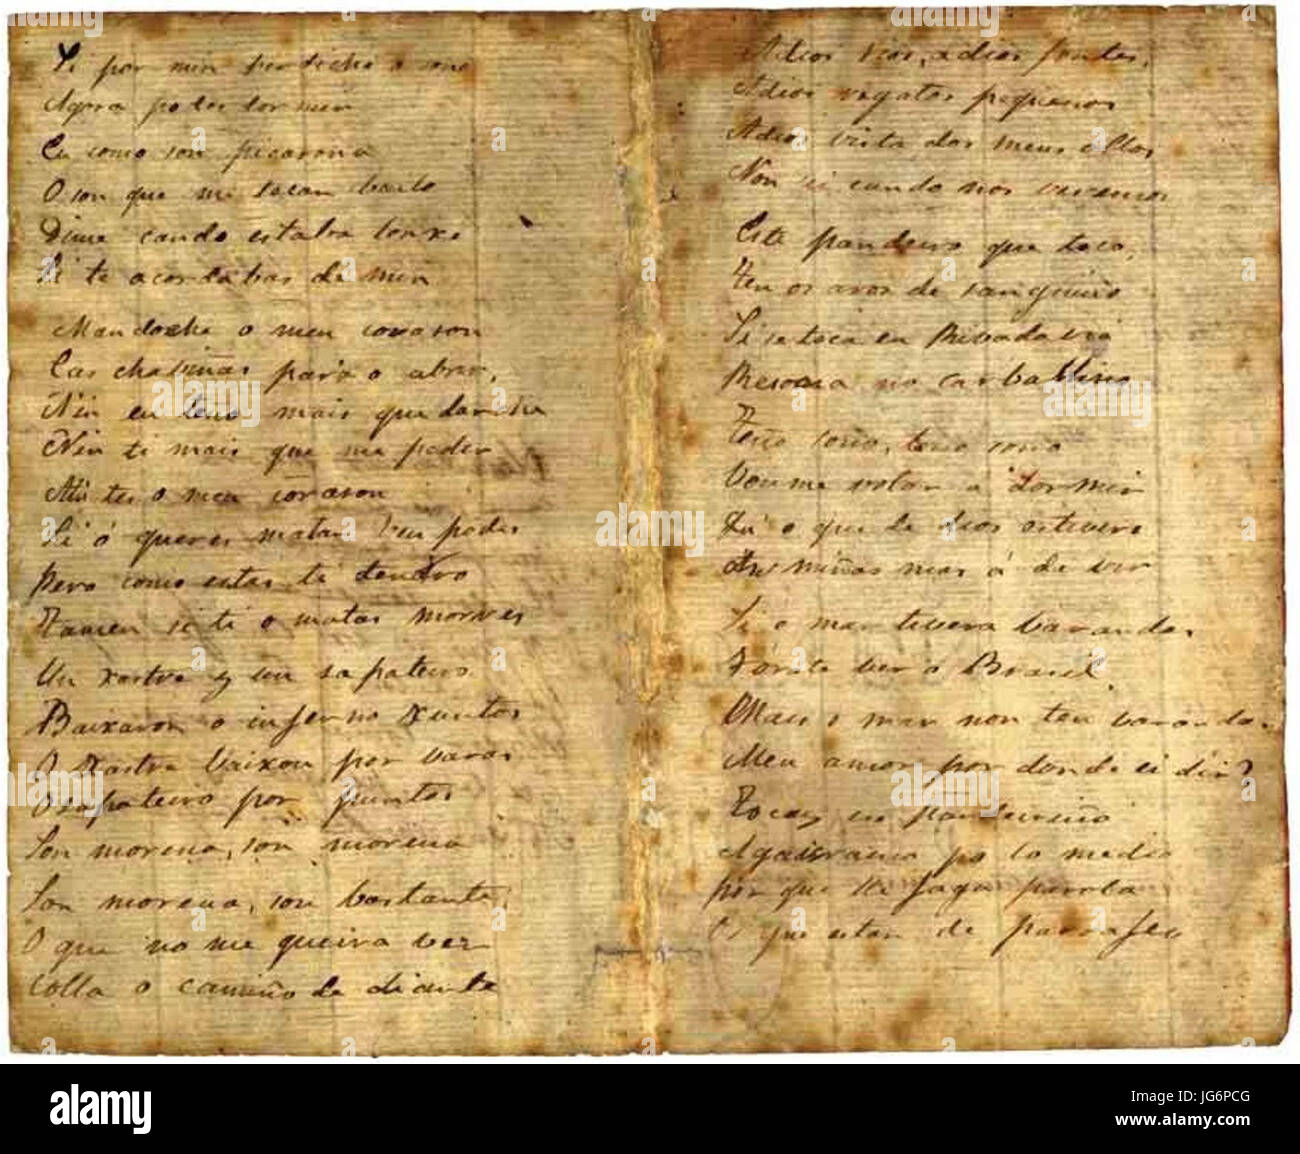 Si por min perdiche o sono
Agora podes dormir
Eu como son picarona
O son que me tocan bailo
Dime cando estaba lonxe
Si te acordabas de min
Mandoche o meu corason
Cas chabiñas para o abrir,
Nin eu teño mais que darche
Nin ti mais que me pedir
Ahi tes o meu corason
Si ó queres matar ben podes
Pero como estas ti dentro
Tamen si ti o matas morres
Un xastre y un sapateiro
Baixaron o inferno xuntos
O xastre baixou por varas
O sapateiro por puntos
Son morena, son morena
Son morena, son bastante,
O que no me queira ver
Colla o camiño de diante
Adios rios, adios fontes,
Adios regatos pequenos
Adios vista dos meus ollos
Non sei cando nos veremos
Este pandeiro que toco,
Ten os aros de sanguiño
Si se toca en Rivadavia
Resona no Carballino
Teño sono, teño sono
Voume volar a dormir
Tu o que de dios estivere
As miñas mas á de vir
Si o mar tivera barandas
Foràte ver o Brasil
Mais o mar non ten barandas
Meu amor por donde ei dir?
Tocay ese pandeireiño
Agairraino po lo medio
por que lle fagu parola
Os que estan de parrafeo
alamy
alamy stock photo
JG6PCG
www.alamy.com